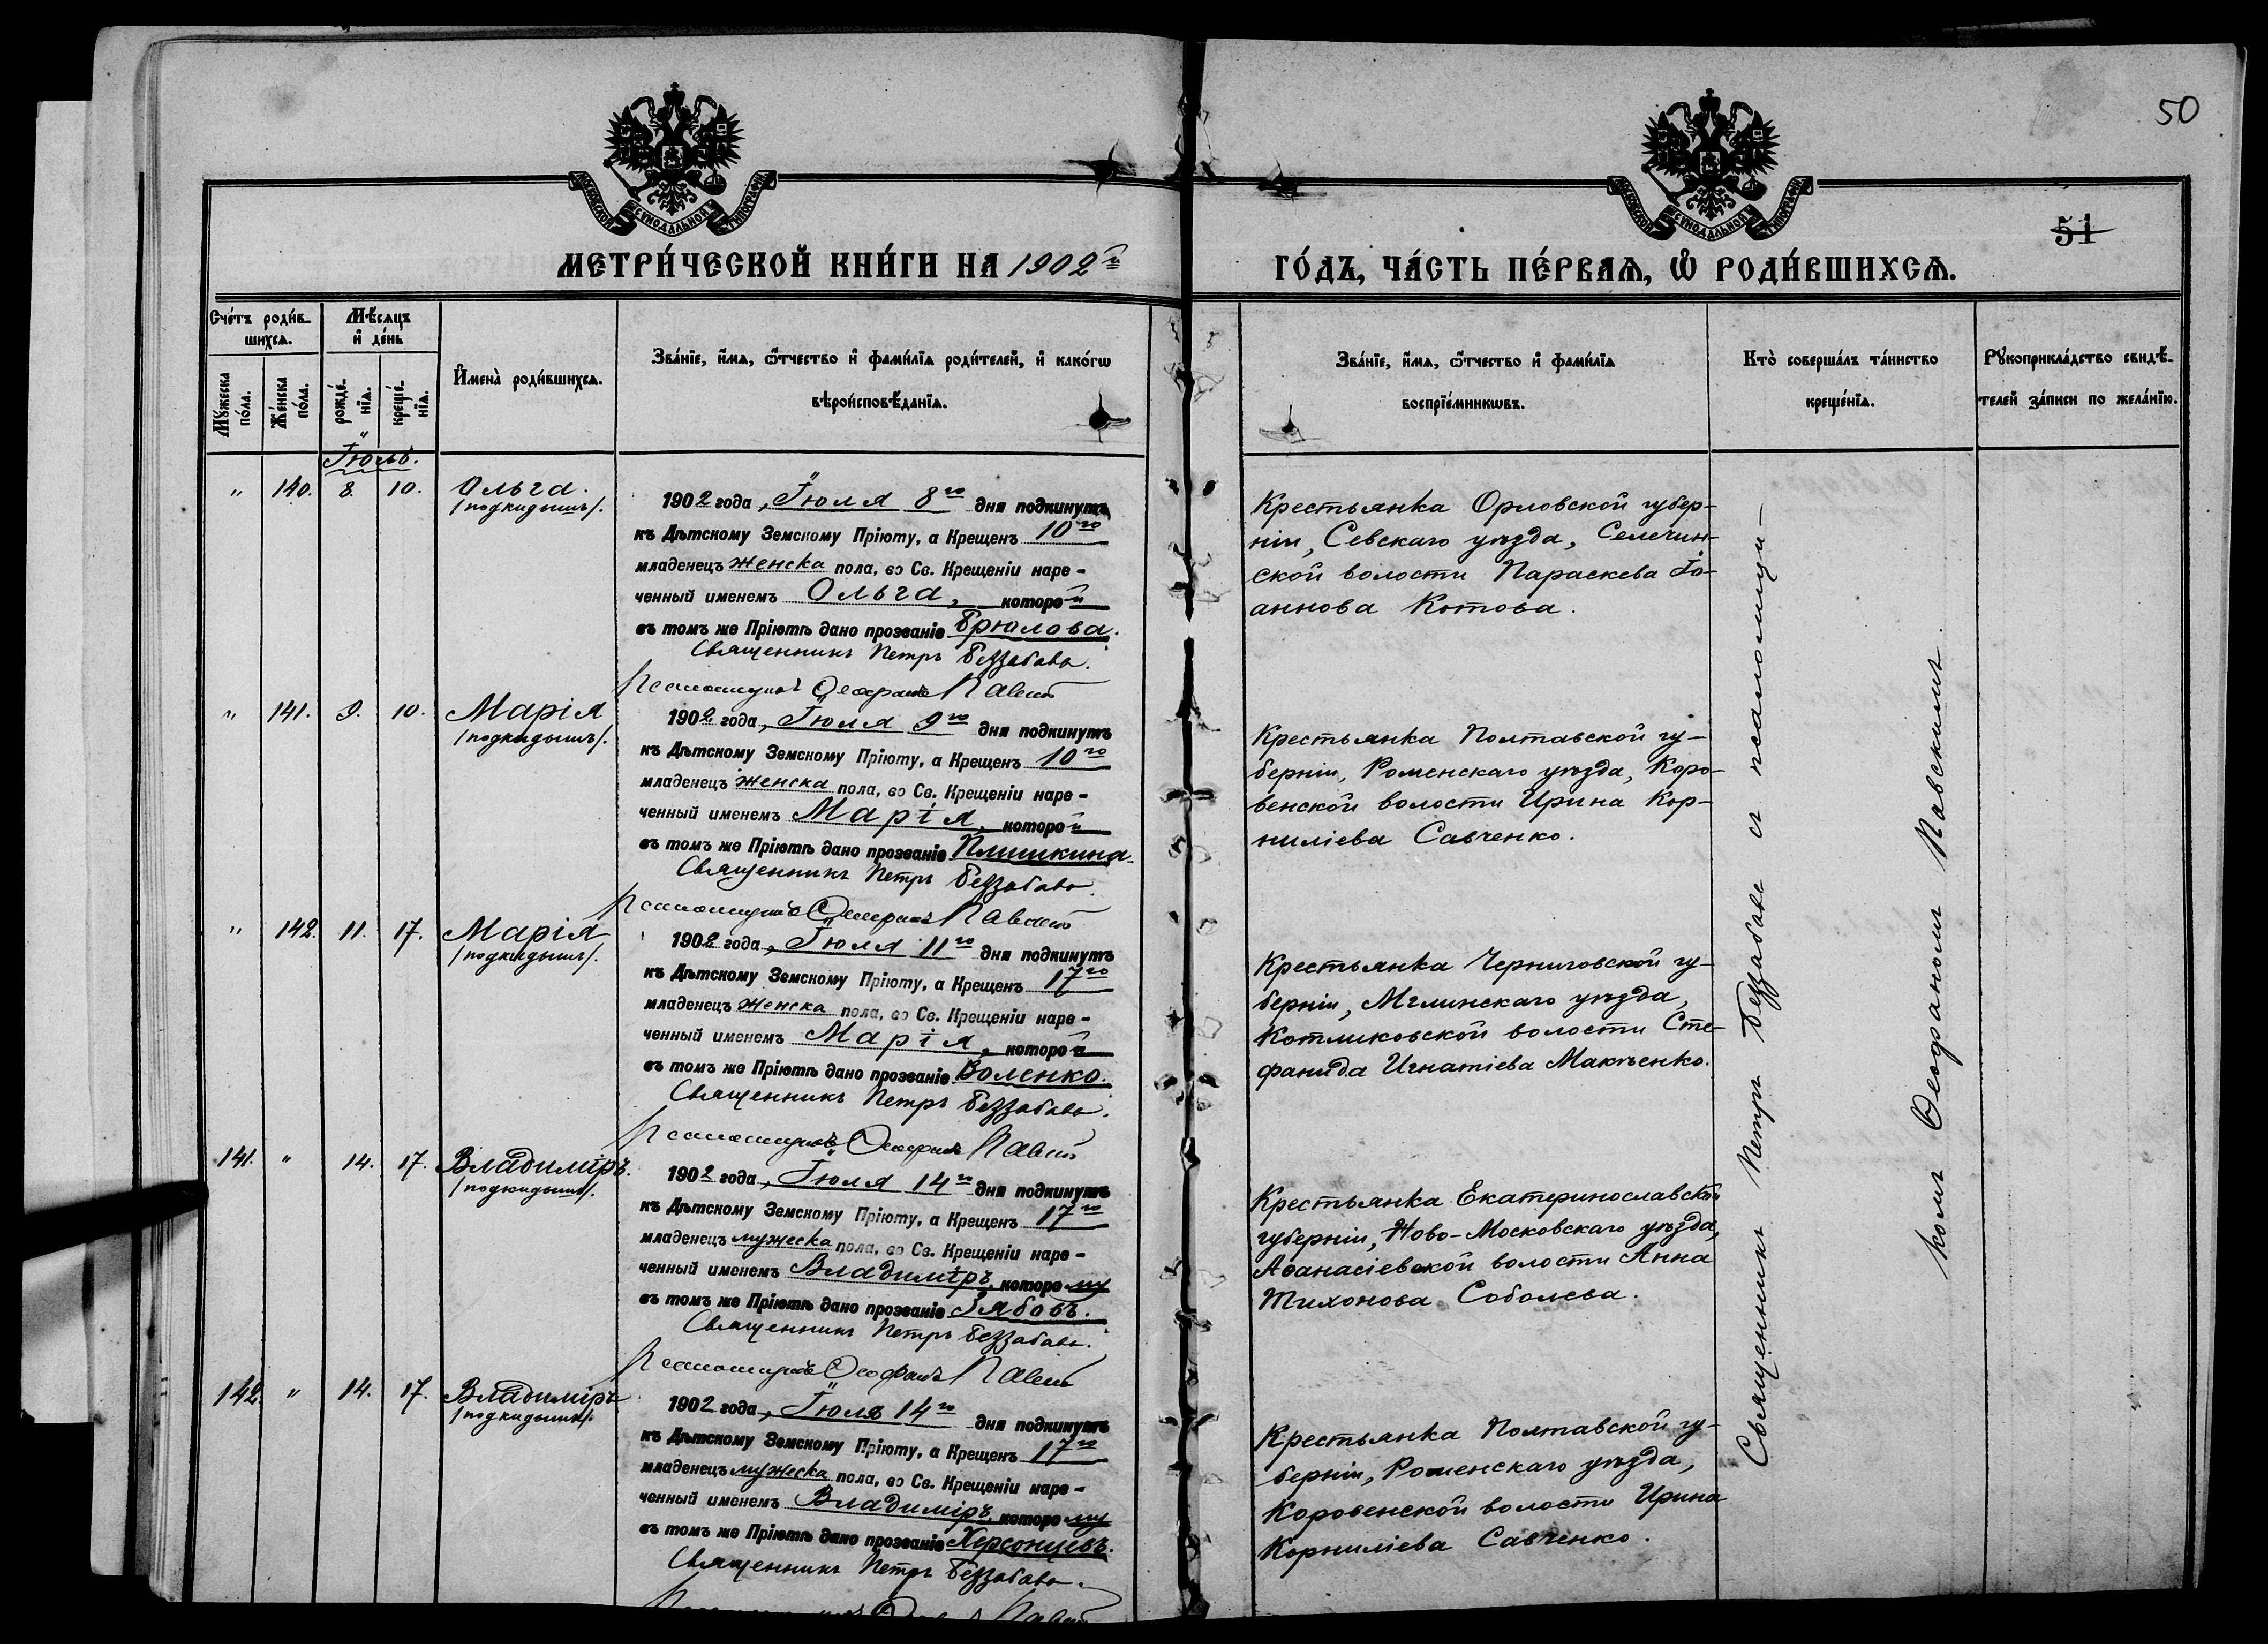 50
МОСКОВСКОЙ СУНОДАЛЬНОЙ ТИПОГРАФІИ
МОСКОВСКОЙ СУНОДАЛЬНОЙ ТИПОГРАФІИ
51
МЕТРИ́ЧЕСКОЙ КНИ́ГИ НА 1902й
ГО́ДЪ, ЧА́СТЬ ПЕ́РВАЯ, Ѡ҆ РОДИ́ВШИХСЯ.
Сче́тъ роди́в-
шихся.
Мꙋжеска по́ла.
Же́нска по́ла.
Мѣ́сяцъ
и҆ де́нь
рожде́-
нїя.
креще́-
нїя.
И҆мена̀ роди́вшихся.
Зва́нїе, и҆́мя, ѻ҆́тчество и҆ фами́лїя роди́телей, и҆ како́гѡ
вѣроисповѣ́данїя.
Зва́нїе, и҆́мя, ѻ҆́тчество и҆ фами́лїя
воспрїе́мникѡвъ.
Кто̀ соверша́лъ та́инство
креще́нїя.
Рꙋкоприкла́дство свидѣ́-
телей за́писи по жела́нїю.
Іюль.
" 140. 8. 10. Ольга.
/подкидышъ/.
1902 года, Іюля 8го дня подкинутъ
къ Дѣтскому Земскому Пріюту, а Крещенъ 10го
младенецъ женска пола, во Св. Крещеніи наре-
ченный именемъ Ольга, которой
въ томъ же Пріютѣ дано прозваніе Брюлова.
Священникъ Петръ Беззабава.
Псаломщикъ Ѳеофанъ Павскій
Крестьянка Орловской губер-
ніи, Севскаго уѣзда, Селечин-
ской волости Параскева Іо-
аннова Котова.
" 141. 9. 10. Марія
/подкидышъ/.
1902 года, Іюля 9го дня подкинутъ
къ Дѣтскому Земскому Пріюту, а Крещенъ 10го
младенецъ женска пола, во Св. Крещеніи наре-
ченный именемъ Марія, которой
въ томъ же Пріютѣ дано прозваніе Плишкина.
Священникъ Петръ Беззабава.
Псаломщикъ Ѳеофанъ Павскій
Крестьянка Полтавской гу-
берніи, Роменскаго уѣзда, Коро-
венской волости Ирина Кор-
ниліева Савченко.
" 142. 11. 17. Марія
/подкидышъ/.
1902 года, Іюля 11го дня подкинутъ
къ Дѣтскому Земскому Пріюту, а Крещенъ 17го
младенецъ женска пола, во Св. Крещеніи наре-
ченный именемъ Марія, которой
въ томъ же Пріютѣ дано прозваніе Воленко.
Священникъ Петръ Беззабава.
Псаломщикъ Ѳеофанъ Павскій
Крестьянка Черниговской гу-
берніи, Мглинскаго уѣзда,
Котликовской волости Сте-
фанида Игнатіева Макѣенко.
141. " 14. 17. Владиміръ.
/подкидышъ/.
1902 года, Іюля 14го дня подкинутъ
къ Дѣтскому Земскому Пріюту, а Крещенъ 17го
младенецъ мужеска пола, во Св. Крещеніи наре-
ченный именемъ Владиміръ, которому
въ томъ же Пріютѣ дано прозваніе Зябовъ.
Священникъ Петръ Беззабава.
Псаломщикъ Ѳеофанъ Павскій
Крестьянка Екатеринославской
губерніи, Ново-Московскаго уѣзда,
Аѳанасіевской волости Анна
Тихонова Соболева.
142. " 14. 17. Владиміръ
/подкидышъ/.
1902 года, Іюля 14го дня подкинутъ
къ Дѣтскому Земскому Пріюту, а Крещенъ 17го
младенецъ мужеска пола, во Св. Крещеніи наре-
ченный именемъ Владиміръ, которому
въ томъ же Пріютѣ дано прозваніе Херсонцевъ.
Священникъ Петръ Беззабава.
Крестьянка Полтавской гу-
берніи, Роменскаго уѣзда,
Коровенской волости Ирина
Корниліева Савченко.
Священникъ Петръ Беззабава съ псаломщи-
комъ Ѳеофаномъ Павскимъ.